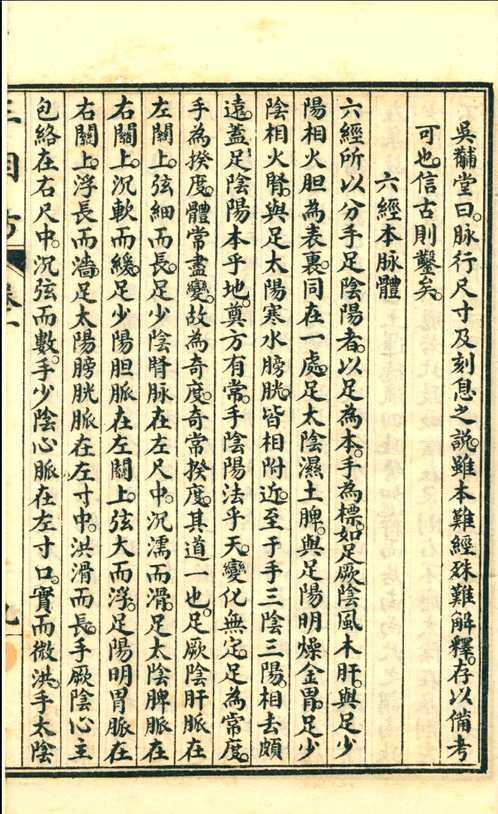 吳黼堂曰。脉行尺寸及刻息之說。雖本難經。殊難解釋。存以備考
可也。信古則鑿矣。
六經本脉體
六經所以分手足陰陽者。以足為本。手為標。如足厥陰風木肝。與足少
陽相火胆為表裏。同在一處。足太陰濕土脾。與足陽明燥金胃。足少
陰相火腎。與足太陽寒水膀胱。皆相附近。至于手三陰三陽。相去頗
遠。蓋足陰陽本乎地。奠方有常。手陰陽法乎天。變化無定。足為常度。
手為揆度。體常盡變。故為奇度。奇常揆度。其道一也。足厥陰肝脈在
左關上。弦細而長。足少陰腎脉在左尺中。沉濡而滑。足太陰脾脈在
右關上。沉軟而緩。足少陽胆脈在左關上。弦大而浮。足陽明胃脈在
右關上。浮長而濇。足太陽膀胱脈在左寸中。洪滑而長。手厥陰心主
包絡在右尺中。沉弦而數。手少陰心脈在左寸口。實而微洪。手太陰
三因方 卷一 九